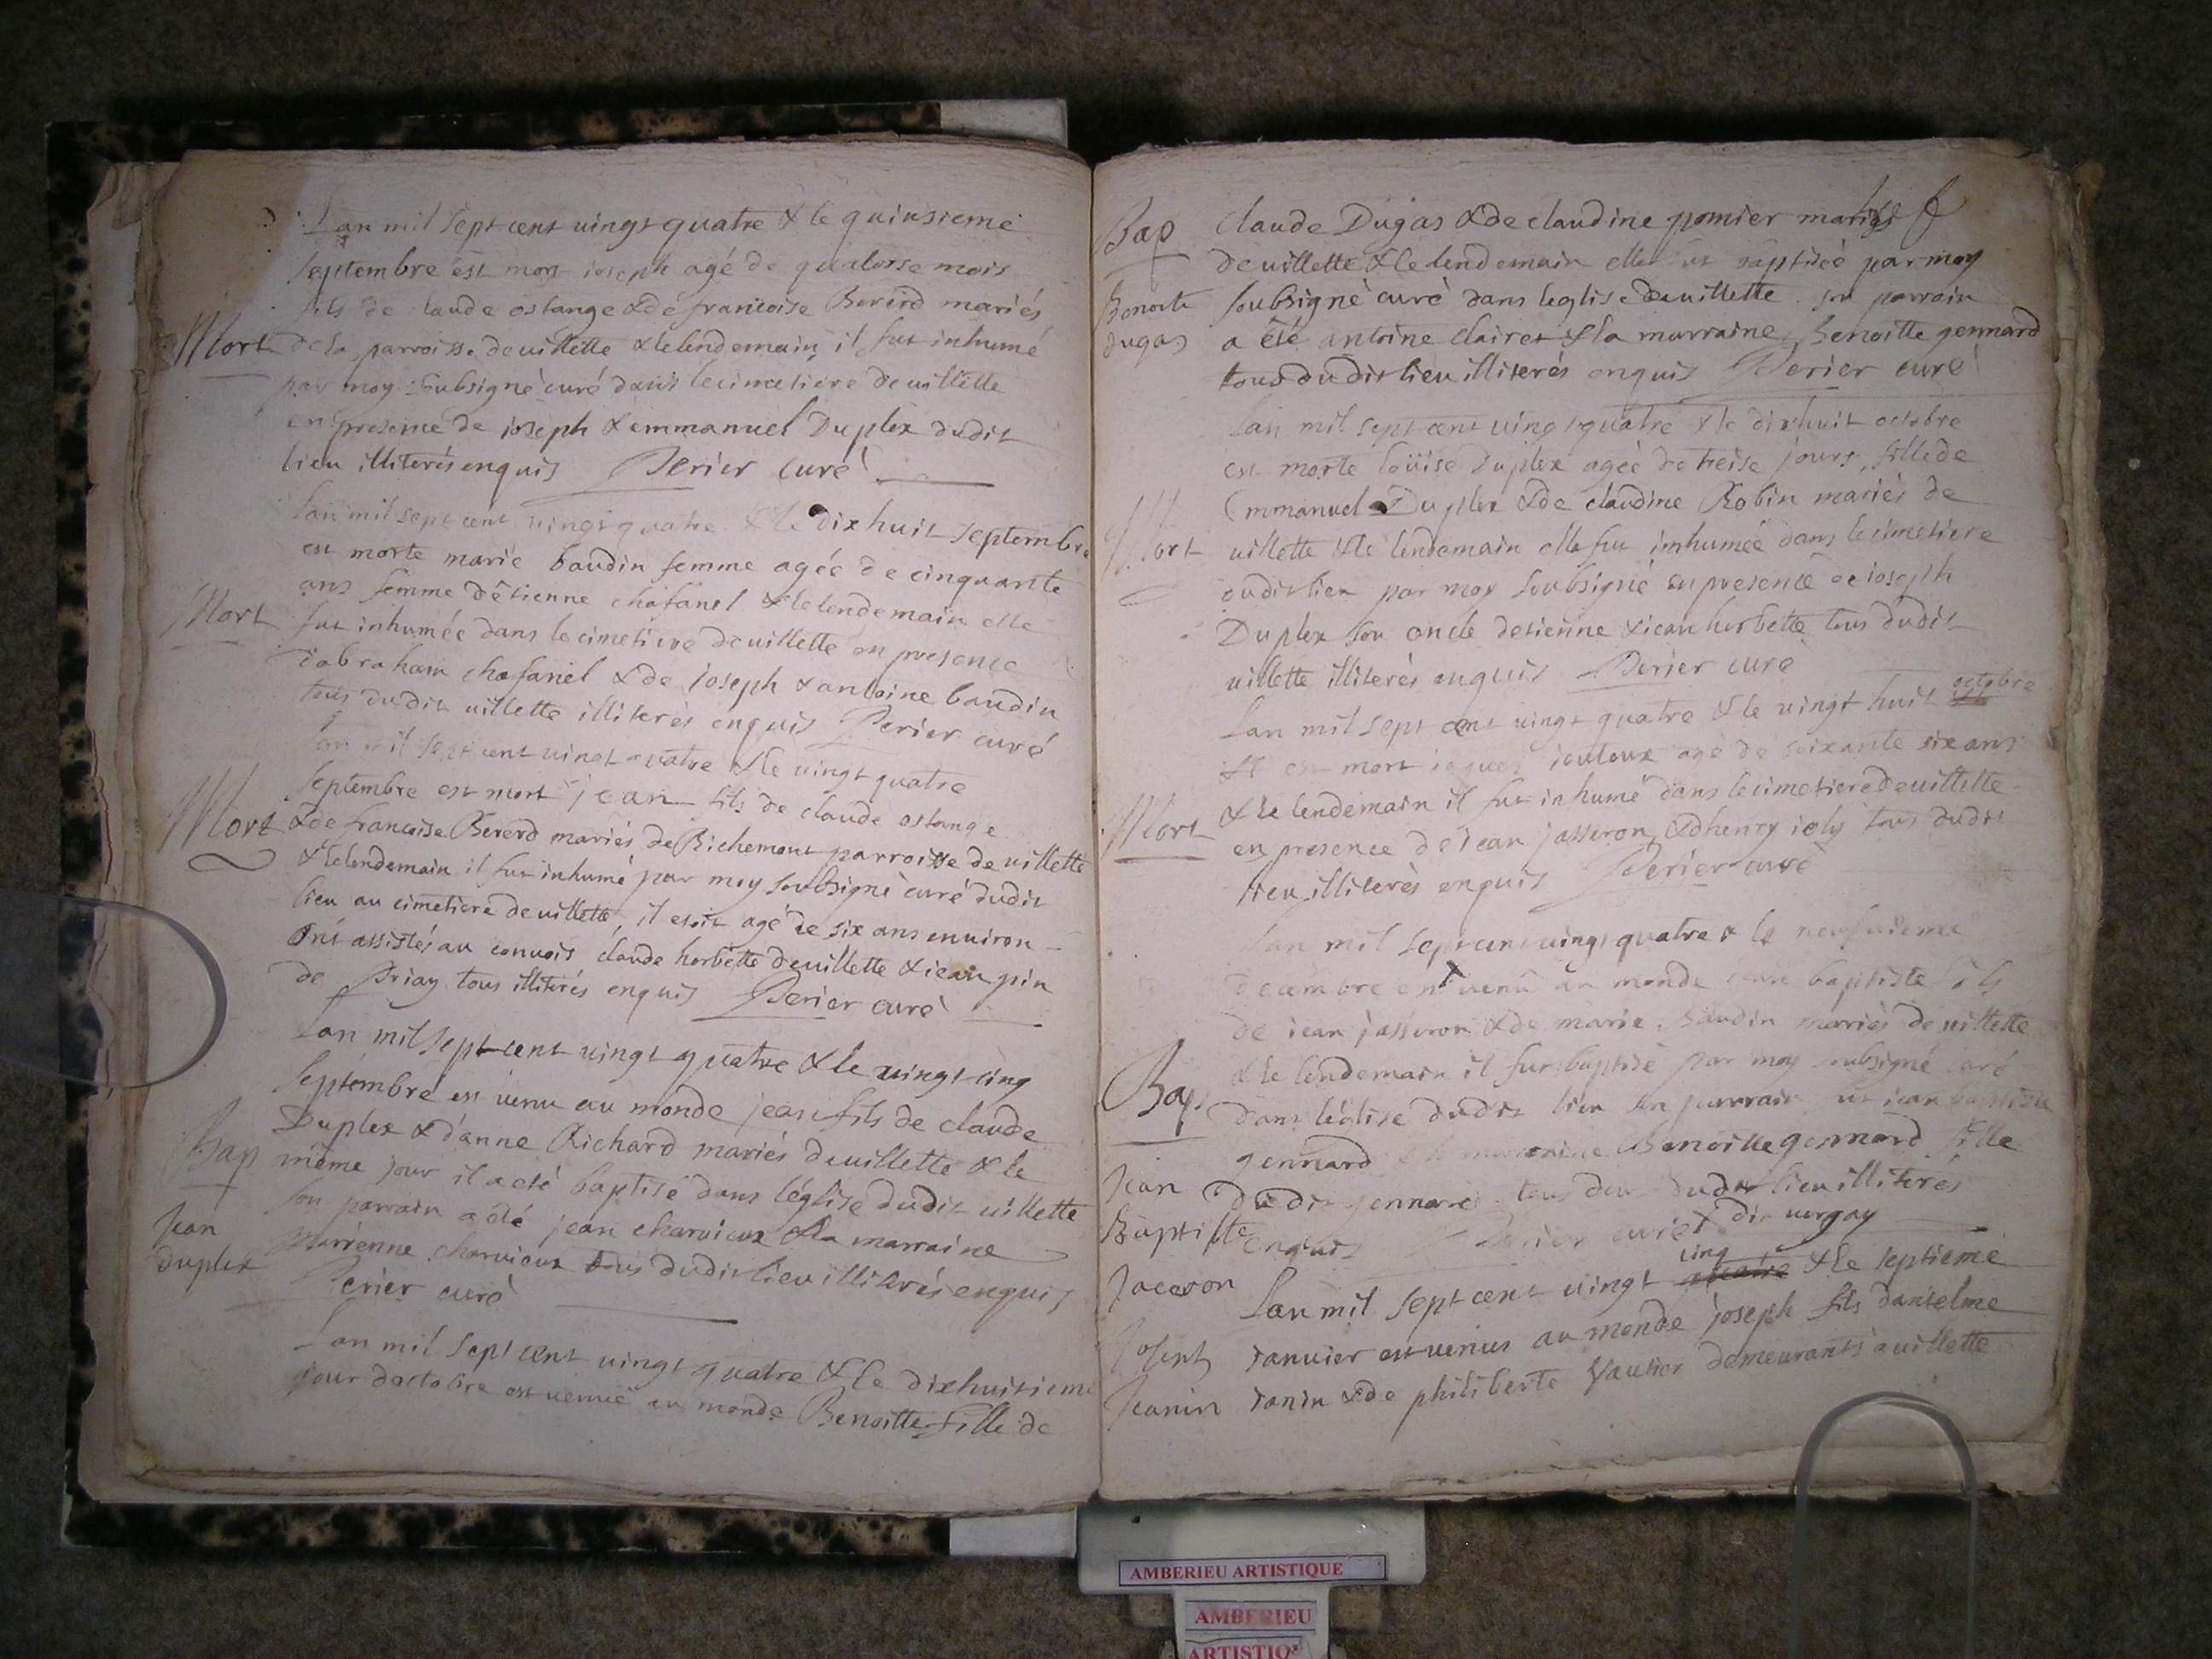 Lan mil sept cent uingt quatre & le quinsieme
septembre est mort ioseph agé de quatorse mois
fils de claude ostange & de francoise Bererd mariés
Mort
de la parroisse de uillette & le lendemain il fut inhumé
par moy soubsigné curé dans le cimetiere de uillette
en presence de ioseph & emmanuel Duplex dudit
lieu illiterés enquis Perier curé
Lan mil sept cent uingt quatre & le dix huit septembre
est morte marie baudin femme agée de cinquante
ans femme détienne chafanel & le lendemain elle
Mort
fut inhumée dans le cimetiere de uillette en presence
dabraham chafanel & de ioseph & antoine baudin
tous dudit uillette illiterés enquis Perier curé
Lan mil sept cent uingt quatre & le uingt quatre
septembre est mort jean fils de claude ostange
Mort
& de francoise Bererd mariés de Richemont parroisse de uillette
& le lendemain il fut inhumé par moy soubsigné curé dudit
lieu au cimetiere de uillette, il estoit agé de six ans enuiron
Ont assistés au conuois claude horbette de uillette & iean pin
de Priay tous illiterés enquis Perier curé
Lan mil sept cent uingt quatre & le uingt cinq
septembre est uenu au monde jean fils de claude
Duplex & d'anne Richard mariés de uillette & le
Bap
même jour il a eté baptisé dans léglise dudit uillette
son parrain a été jean charuieux & la marraine
Jean
duplex
marienne charuieux tous dudit lieu illiterés enquis
Perier curé
Lan mil sept cent uingt quatre & le dixhuitieme
jour doctobre est uenuë au monde Benoitte fille de
Bap
claude Dugas & de claudine pomier mariés
de uillette & le lendemain elle fut baptiséé par moy
Benoite
dugas
soubsigné curé dans leglise de uillette son parrain
a été antoine clairet & la marraine Benoitte gennard
tous dudit lieu illiterés enquis Perier curé
Lan mil sept cent uingt quatre & le dixhuit octobre
est morte loüise Duplex agéé de treise jours fille de
Emmanuel Duplex & de claudine Robin mariés de
Mort
uillette & le lendemain elle fut inhuméé dans le cimetiere
dudit lieu par moy soubsigné en presence de ioseph
Duplex son oncle detienne & iean horbette tous dudit
uillette illiterés enquis Perier curé
Lan mil sept cent uingt quatre & le uingt huit octobre
est mort iaques iouloux agé de soixante six ans
& le lendemain il fut inhumé dans le cimetiere de uillette
Mort
en presence de iean jasseron & dhenry ioly tous dudit
lieu illiterés enquis Perier curé
Lan mil sept cent uingt quatre & le neufuieme
decembre est uenu au monde jean baptiste fils
de iean jasseron & de marie Baudin mariés de uillette
& le lendemain il fut baptisé par moy soubsigné curé
Bap
dans léglise dudit lieu son parrain fut iean baptiste
gennard & la marraine Benoitte gennard fille
Jean
Baptiste
Jaceron
dudit gennard tous deux dudit lieu illiterés
enquis Perier curé X dit uergay
Lan mil sept cent uingt cinq & le septieme
Joseph
Jeanin
Ianuier est uenus au monde joseph fils danselme
Ianin & de philiberte Vautier demeurants a uillette
AMBERIEU ARTISTIQUE
AMBERIEU
ARTISTIQ